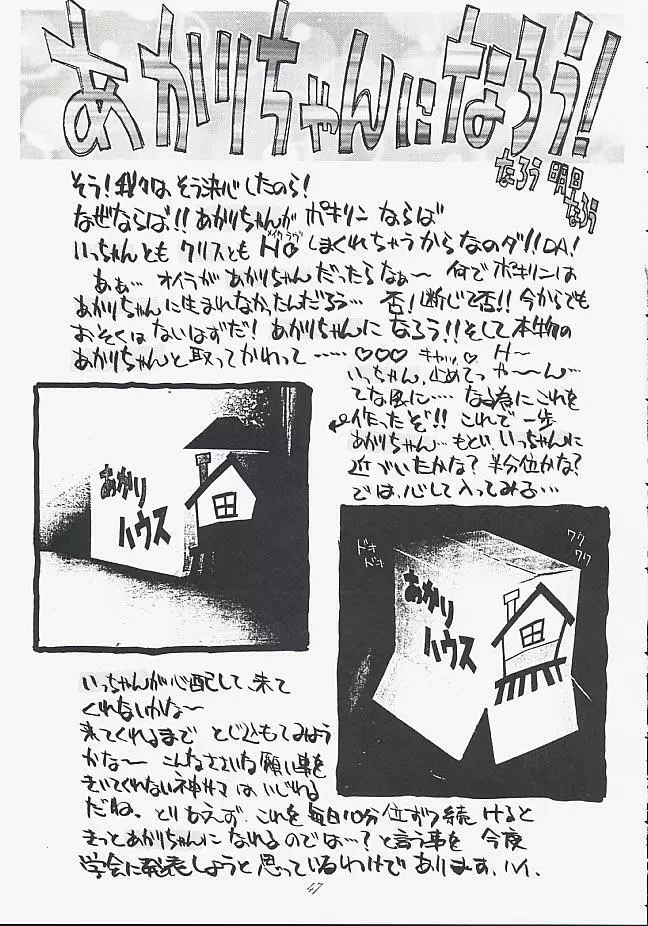 あかりちゃんになろう!
なろう 明日
なろう
そう!我々は、そう決心したのら!
なぜならば!!あかりちゃんが ポキリン ならば
いっちゃんとも クリスとも HO しまくれちゃうからなのダ!!DA!
メイクラヴ
あぁ… オイラが あかりちゃん だったらなぁ〜 何で ポキリンは
あかりちゃんに生まれなかったんだろう… 否!断じて否!!今からでも
おそくは ないはずだ! あかりちゃんに なろう!!そして本物の
あかりちゃんと取ってかわって ‥‥‥ ♡♡♡ キャッ。♡ H〜
いっちゃん、止めてっ や〜ん…
てな風に‥‥ なる為にこれを
作ったぞ!! これで一歩
あかりちゃん… もとい いっちゃんに
近づいたかな? 半分位かな?
では、心して入ってみる…
あかり
ハウス
ドキ
ドキ
ワク
ワク
あかり
ハウス
いっちゃんが心配して、来て
くれないかな〜
来てくれるまで とじ込もてみよう
かな〜 こんなささいな願い事を
きいてくれない神サマは、いじれる
だね。 とりあえず、これを 毎日10分位ずつ続けると
きっとあかりちゃんに なれるのでは…? と言う事を 今度
学会に発表しようと思っているわけで あります、ハイ、
47